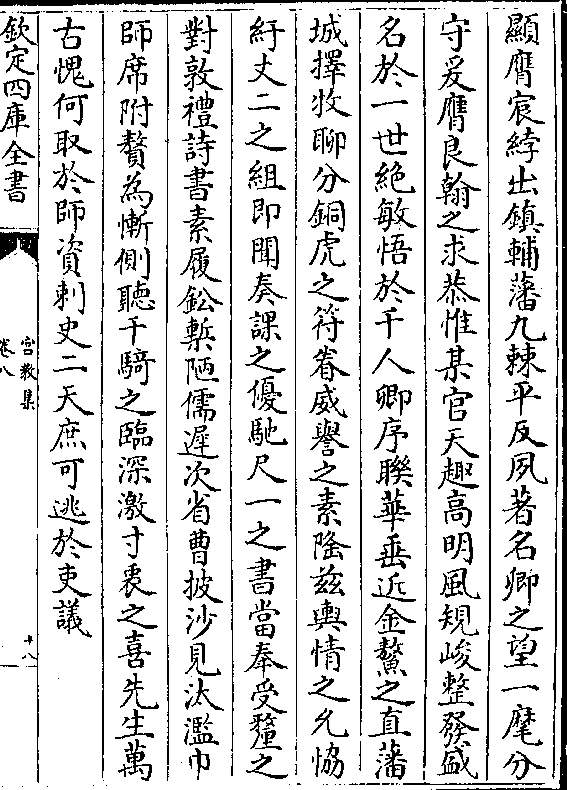 顯膺宸綍出鎮輔藩九棘平反夙著名卿之望一麾分
守爰膺良翰之求恭惟某官天趣高明風規峻整發盛
名於一世絶敏悟於千人卿序聨華垂近金鰲之直藩
城擇牧聊分銅虎之符眷威譽之素隆兹輿情之允恊
紆丈二之組即聞奏課之優馳尺一之書當奉受釐之
對敦禮詩書素履鉛槧陋儒遲次省曹披沙見汰濫巾
師席附贅為慚側聽千騎之臨深激寸衷之喜先生萬
古愧何取於師資刺史二天庶可逃於吏議
欽定四庫全書
宫教集
卷八
十八